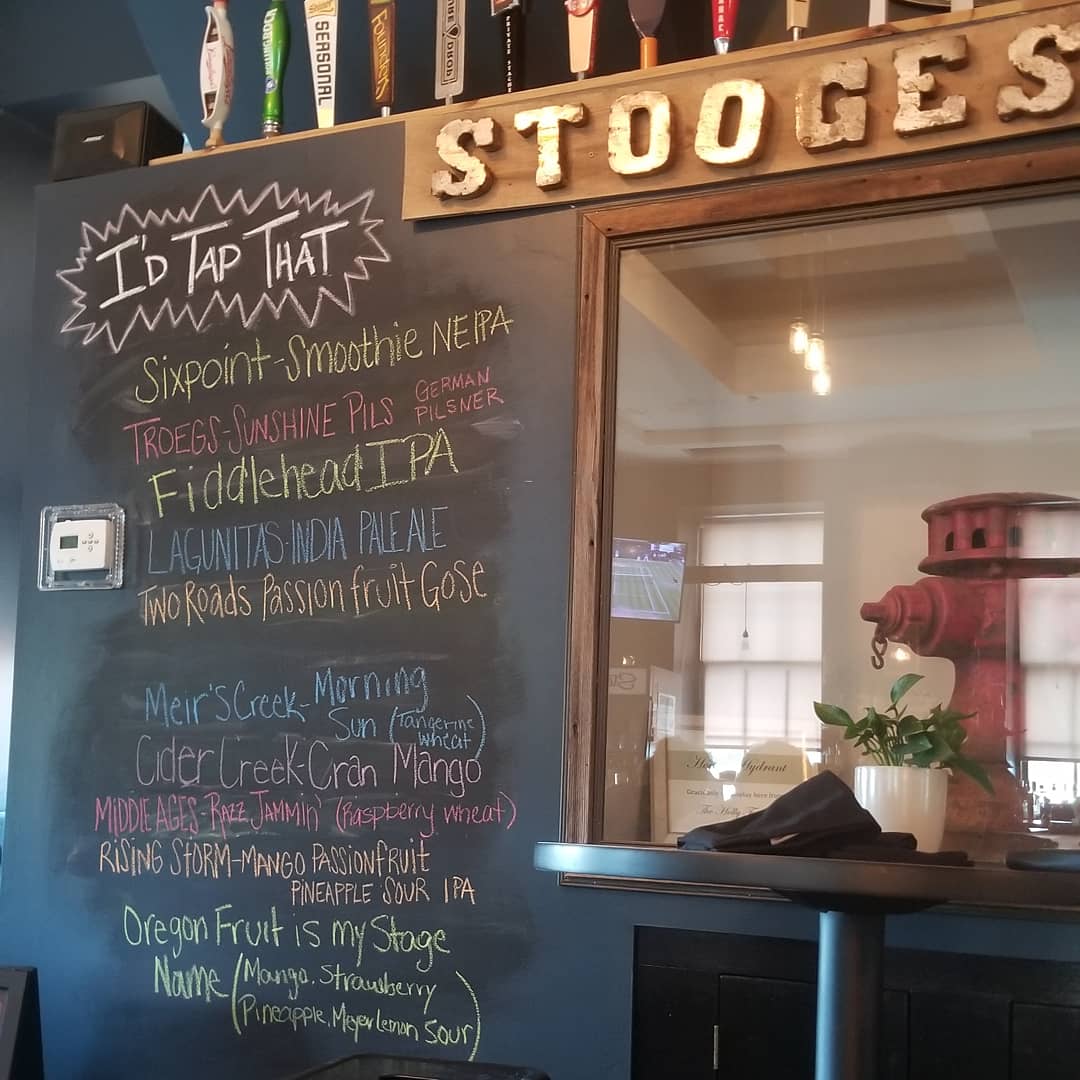 SEASONAL
Founders
FIRE
DROP
PRIVATE STACHE
STOOGES
BOSE
I'D TAP THAT
Sixpoint-Smoothie NEIPA
TROEGS-SUNSHINE PILS GERMAN
PILSNER
Fiddlehead IPA
LAGUNITAS-INDIA PALE ALE
Two Roads Passion fruit Gose
Meir's Creek-Morning
Sun (Tangerine
wheat)
Cider Creek-Cran Mango
MIDDLE AGES-RAZZ JAMMIN' (Raspberry wheat)
RISING STORM-MANGO PASSIONFRUIT
PINEAPPLE SOUR IPA
Oregon Fruit is my Stage
Name (Mango, Strawberry
Pineapple, Meyer Lemon Sour)
Hydrant
The Holly